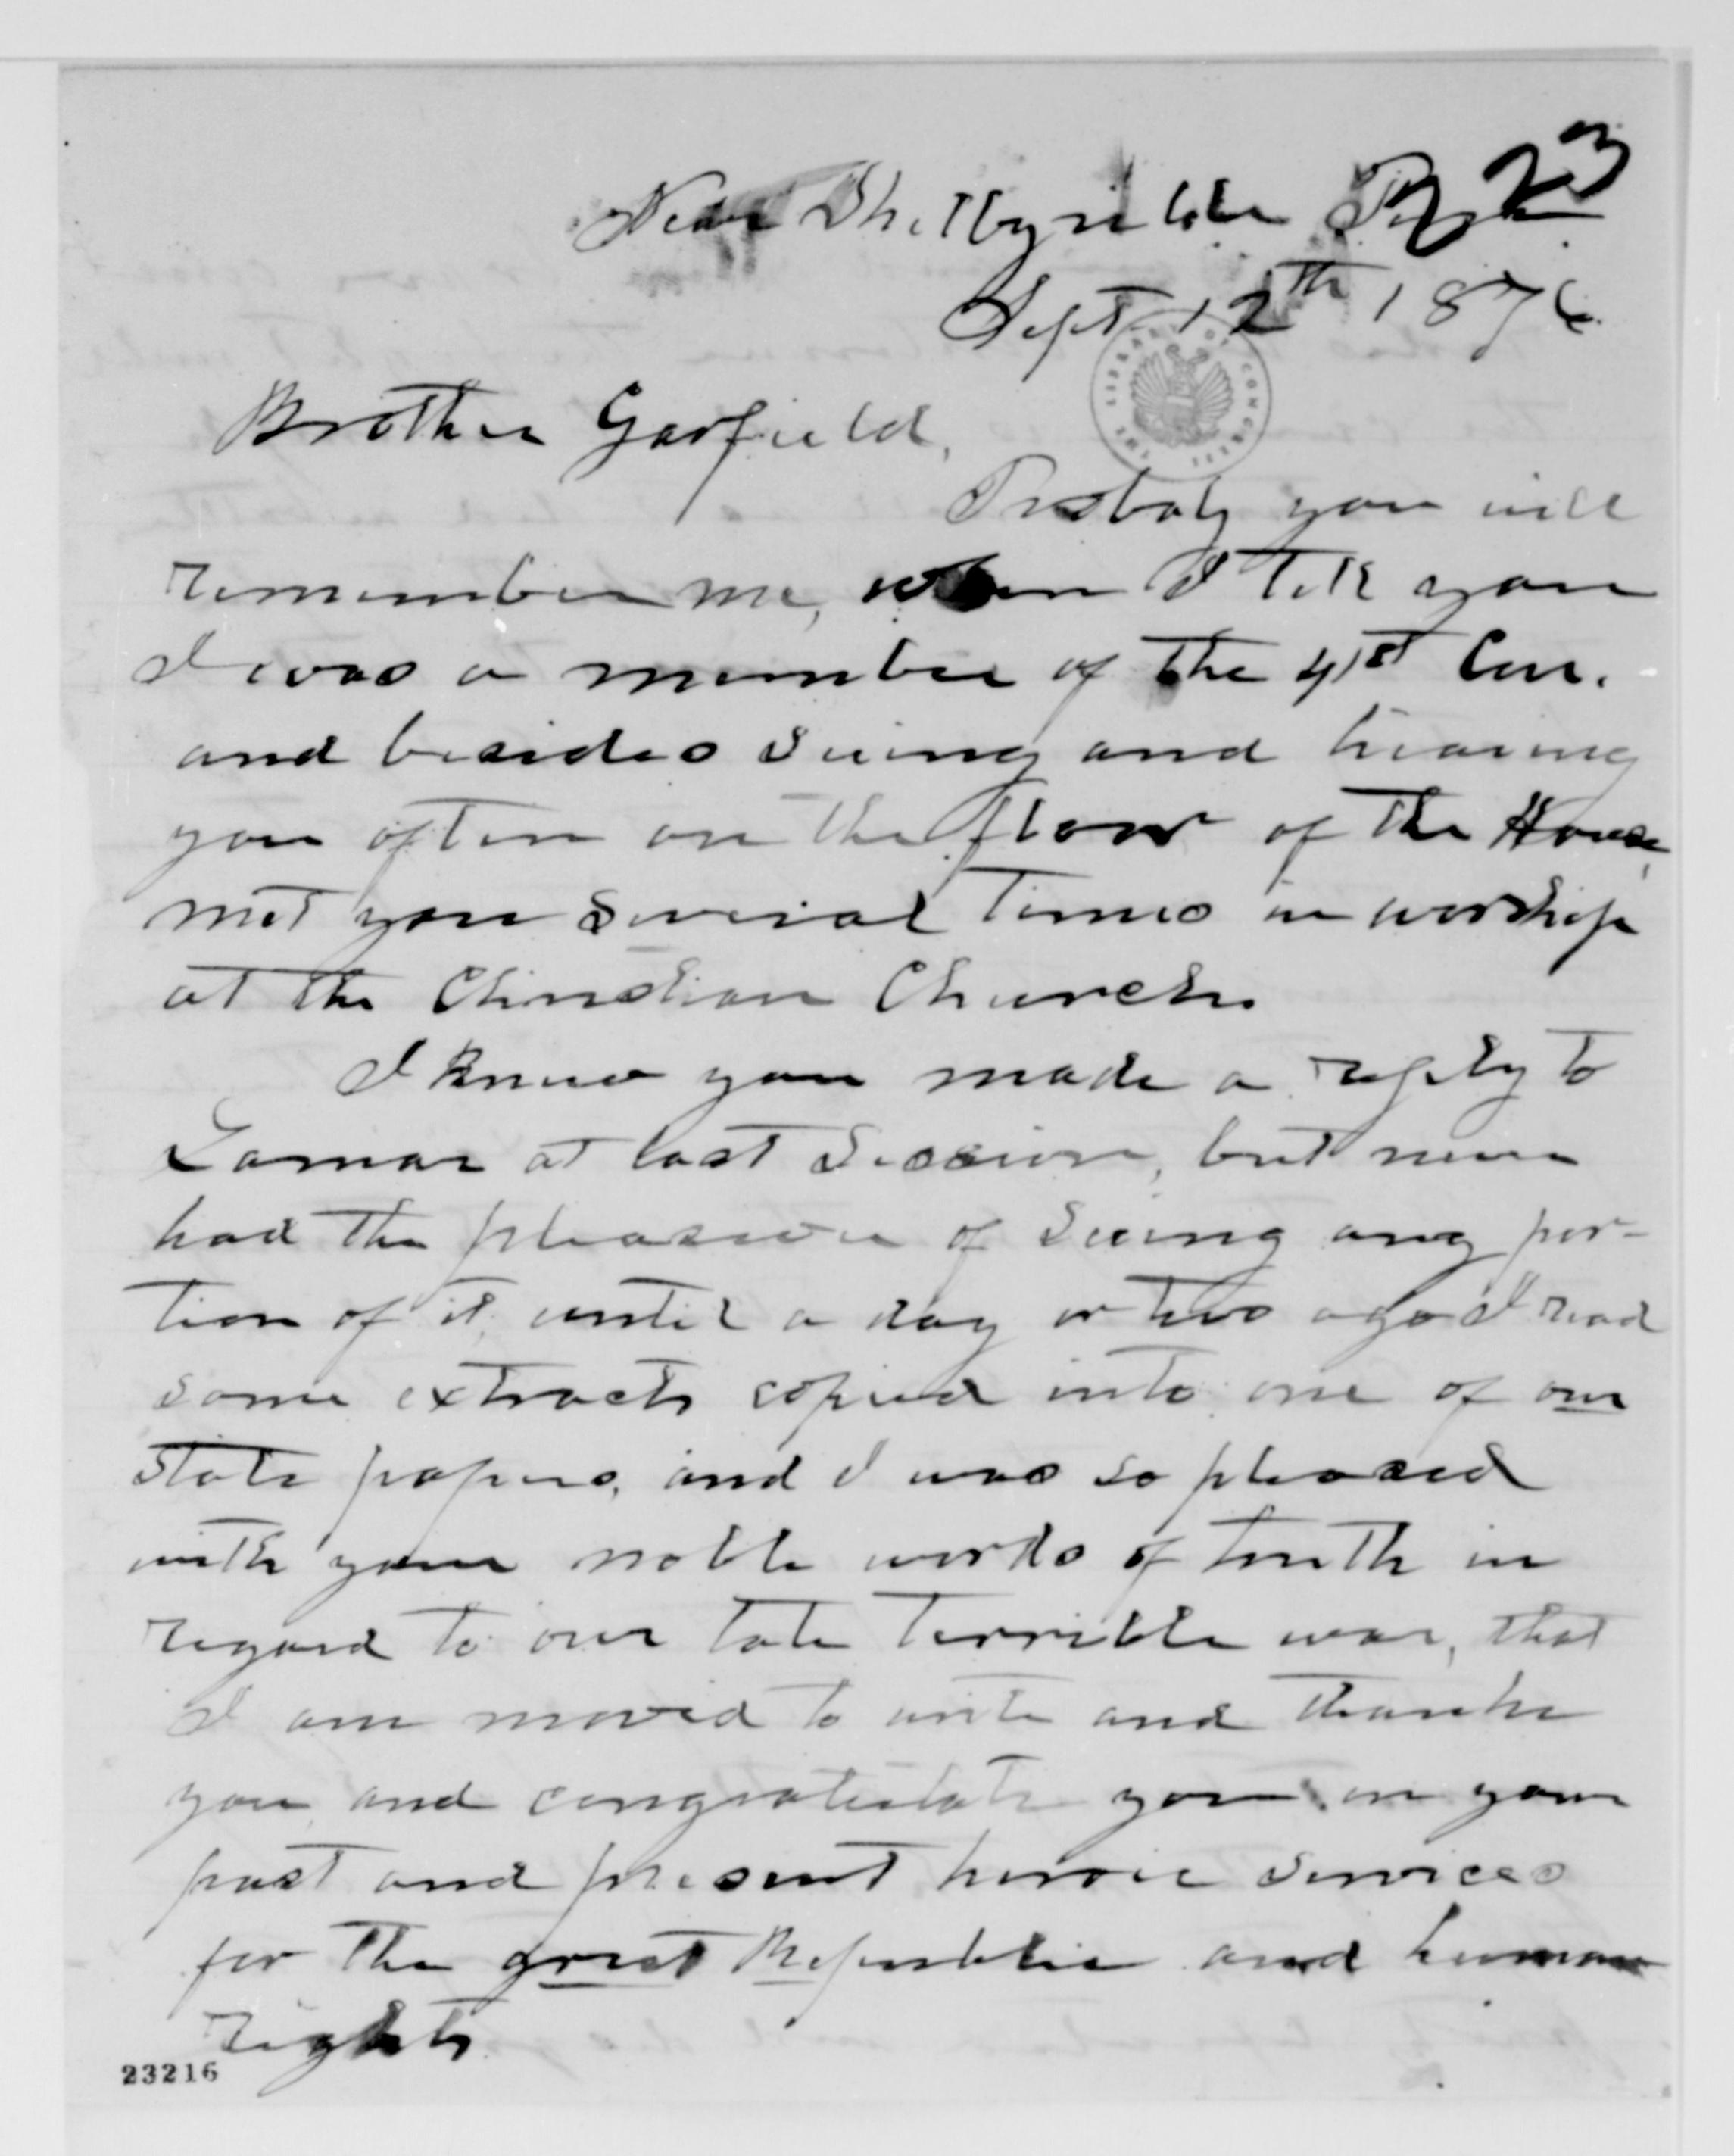 23
Near Shelbyville
Sept 12th 1876
THE LIBRARY OF CONGRESS
Brother Garfield,
Probaly you will
remember me, when I tell you
I was a member of the 41st Con.
and besides seeing and hearing
you often on the floor of the House,
met you several times in worship
at the Christian Church.
I knew you made a reply to
Lamar at last Session, but never
had the pleasure of seeing any por-
tion of it, until a day or two ago I read
some extracts copied into one of our
State papers, and I was so pleased
with your noble words of truth in
regard to our late terrible war, that
I am moved to write and thank
you, and congratulate you on your
past and present heroic services
for the great Republic and human
rights
23216